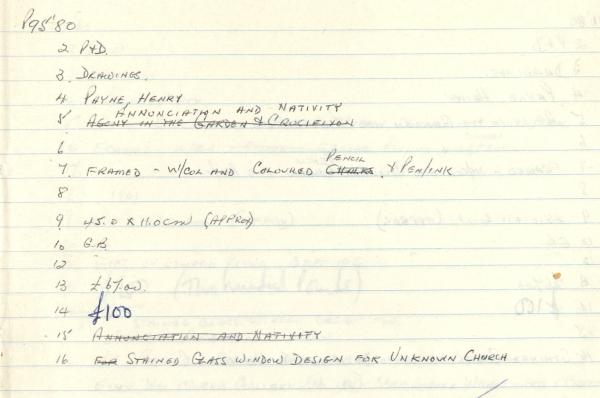 P95'80
2 P+D.
3. DRAWINGS.
4 PAYNE, HENRY
ANNONCIATION AND NATIVITY
5 AGONY IN THE GARDEN & CRUCIFIXION
6
PENCIL
7. FRAMED - W/COL AND COLOURED CHALKS. & PEN/INK
8
9 45.0 X 11.0CM (APPROX)
10 G.B.
12
13 £67.00.
14 £100
15 ANNUNCIATION AND NATIVITY
16 FOR STAINED GLASS WINDOW DESIGN FOR UNKNOWN CHURCH